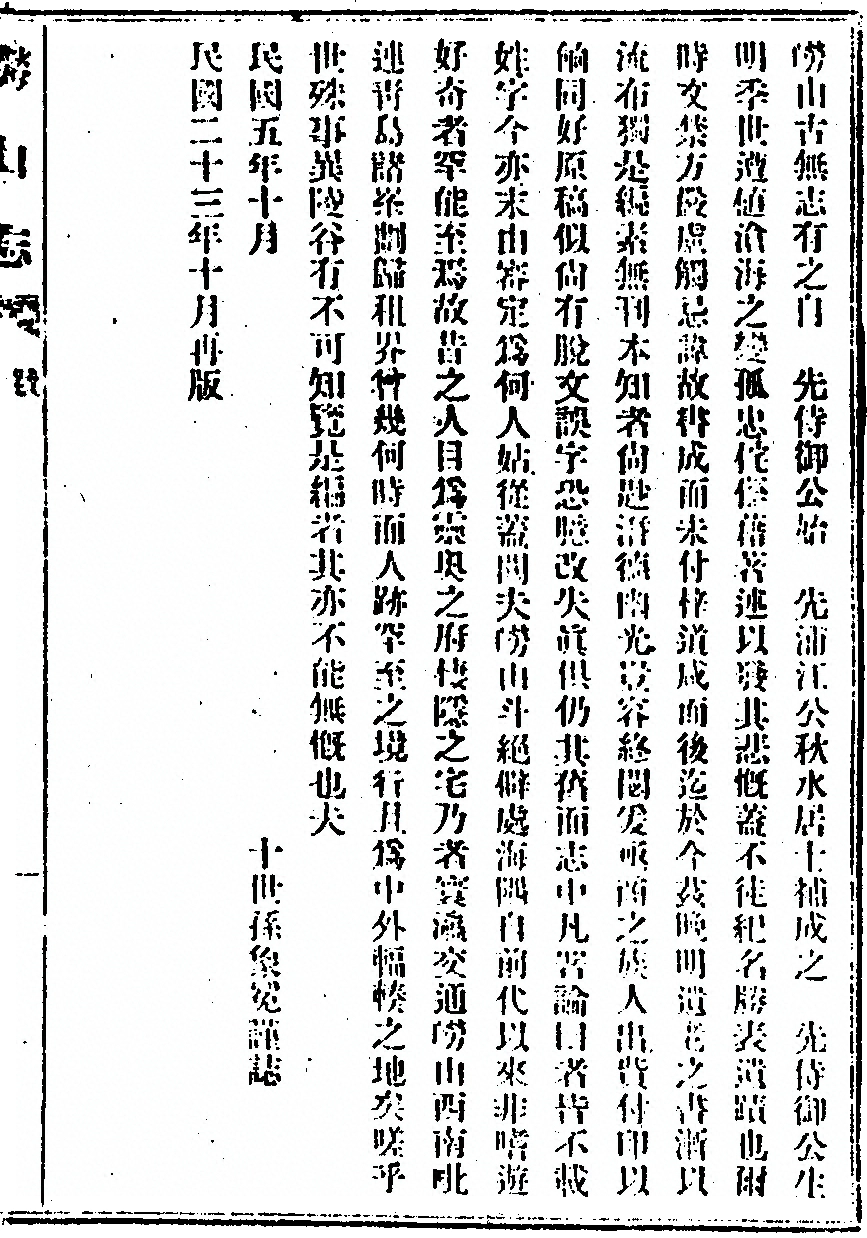 嶗山古無志有之自　先侍御公始　先浦江公秋水居士補成之　先侍御公生
明季世遭值滄海之變孤忠侘傺藉著述以發其悲慨蓋不徒紀名勝表遺蹟也爾
時文禁方嚴慮觸忌諱故書成而未付梓道咸而後迄於今茲晚明遺老之書漸以
流布獨是編素無刊本知者尙尠潛德幽光豈容終閟爰亟商之族人出貲付印以
餉同好原稿似尙有脫文誤字恐臆改失眞俱仍其舊而志中凡署論曰者皆不載
姓字今亦末由審定爲何人姑從蓋闕夫嶗山斗絕僻處海隅自前代以來非嗜遊
好奇者罕能至焉故昔之人目爲靈奥之府棲隱之宅乃者寰瀛交通嶗山西南毗
連靑島諸峯劃歸租界曾幾何時而人跡罕至之境行且爲中外輻輳之地矣嗟乎
世殊事異陵谷有不可知覽是編者其亦不能無慨也夫
民國五年十月　十世孫象冕謹誌
民國二十三年十月再版
山志